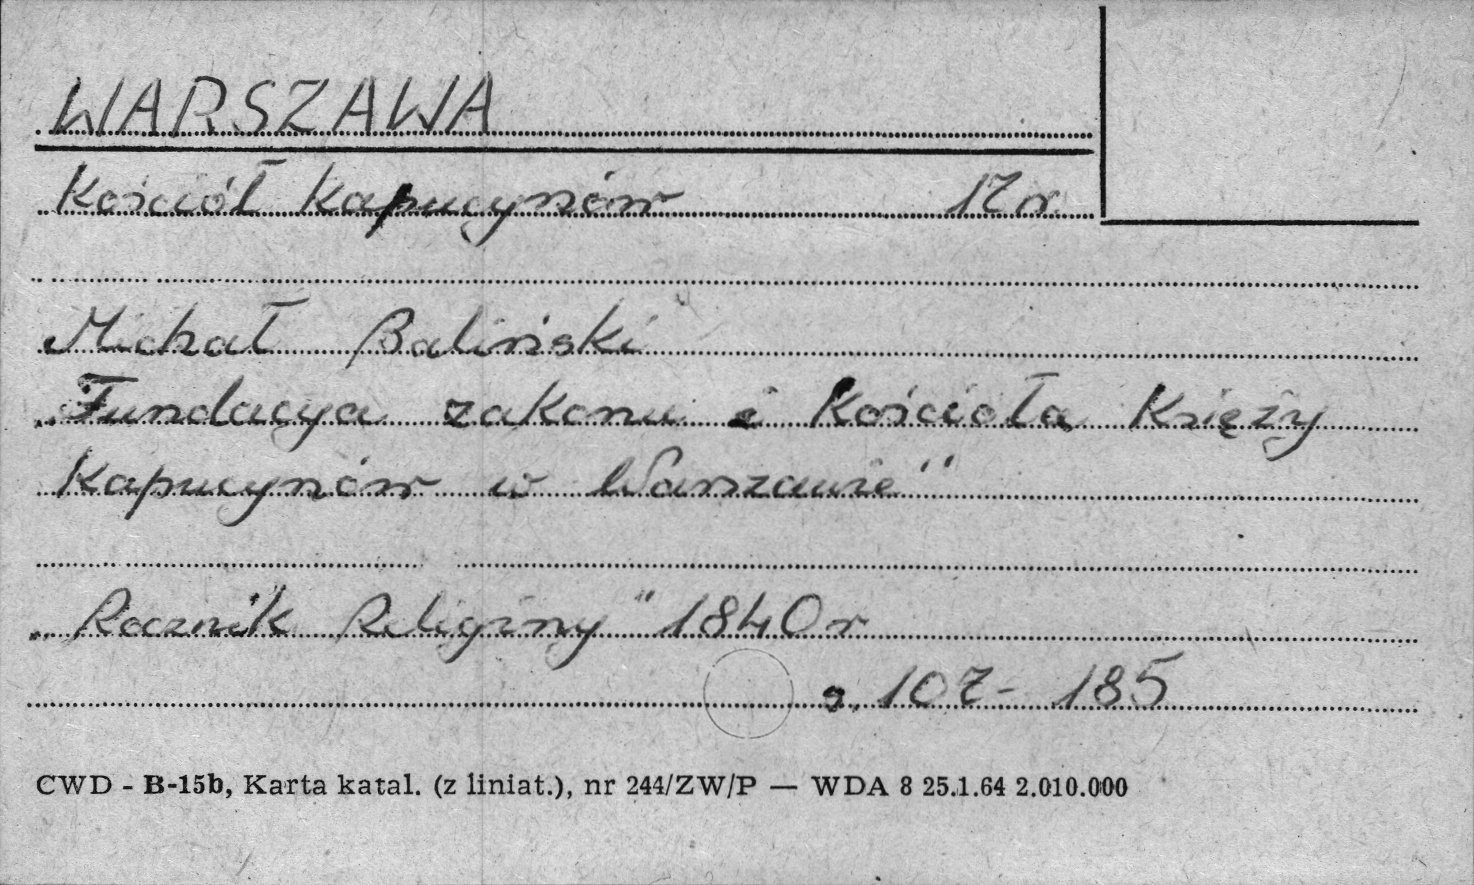 WARSZAWA
Kościół Kapucynów 17 r.
Michał Baliński
„Fundacya zakonu i Kościoła Księży
Kapucynów w Warszawie"
„Rocznik Religijny" 1840 r
s. 107 - 185
CWD - B-15b, Karta katal. (z liniat.), nr 244/ZW/P — WDA 8 25.1.64 2.010.000